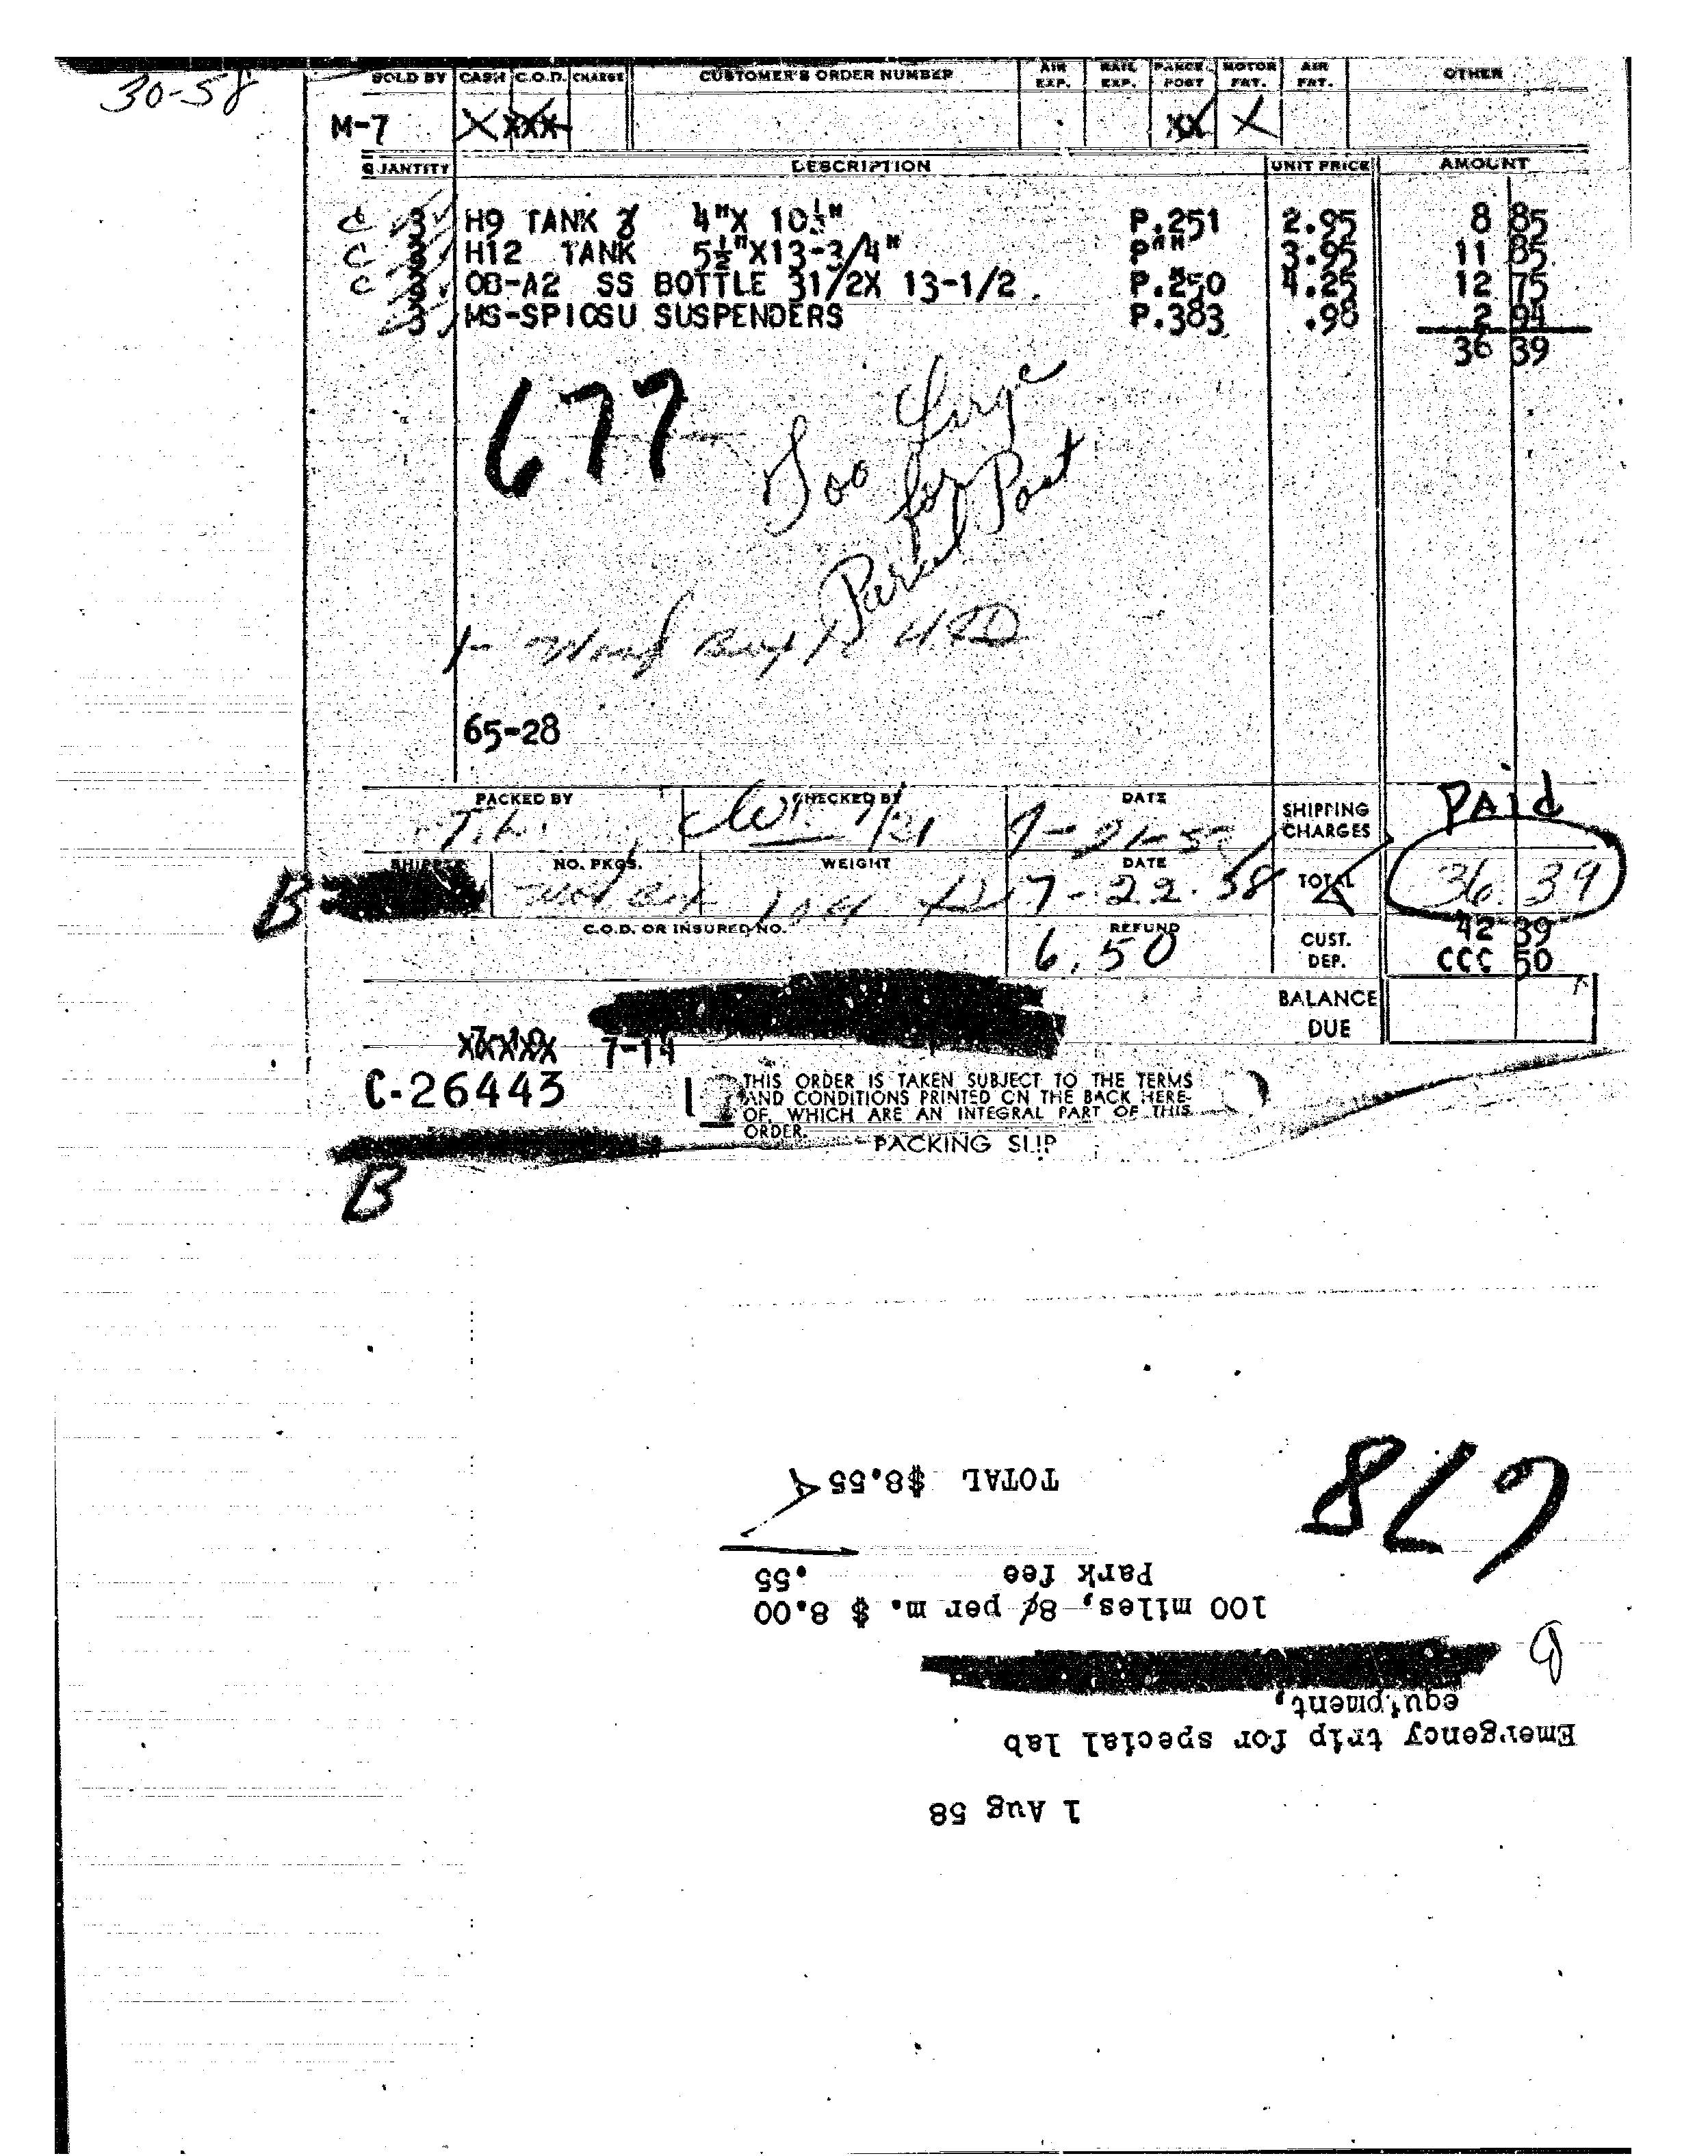 30-58
SOLD BY CASH C.O.D. CHARGE CUSTOMER'S ORDER NUMBER AIR EXP. RAIL EXP. PARCEL POST MOTOR FRT. AIR FRT. OTHER
M-7 X XXX XX X
QUANTITY DESCRIPTION UNIT PRICE AMOUNT
C 3 H9 TANK 4"X 10½" P.251 2.95 8 85
C 3 H12 TANK 5½"X13-3/4" P"" 3.95 11 85
C 3 OB-A2 SS BOTTLE 31/2X 13-1/2 P.250 4.25 12 75
3 MS-SPICSU SUSPENDERS P.383 .98 2 94
36 39
677
Too Large
for
Parcel Post
65-28
PACKED BY CHECKED BY DATE SHIPPING CHARGES PAId
7/21 7-21-58
SHIPPER NO. PKGS. WEIGHT DATE TOTAL 36.39
B 7-22-58
C.O.D. OR INSURED NO. REFUND CUST. DEP. 42 39
6.50 CCC 50
BALANCE DUE
7-14
C-26443
THIS ORDER IS TAKEN SUBJECT TO THE TERMS
AND CONDITIONS PRINTED ON THE BACK HERE-
OF, WHICH ARE AN INTEGRAL PART OF THIS
ORDER.
PACKING SLIP
B
1 Aug 58
Emergency trip for special lab
equipment,
B
100 miles, 8¢ per m. $ 8.00
Park fee .55
TOTAL $8.55
678